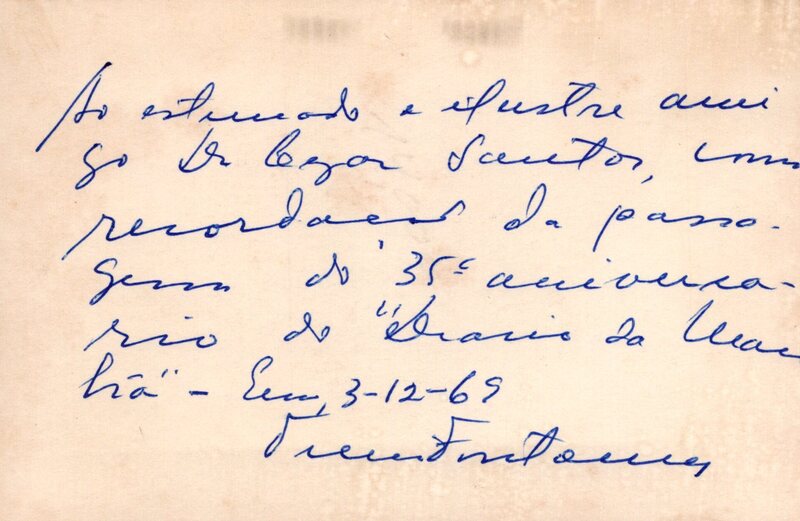 Ao estimado e ilustre ami
go Dr Cezar Santos, uma
recordação da passa-
gem do 35º aniversa-
rio do "Diario da Man
hã" - Em, 3-12-69